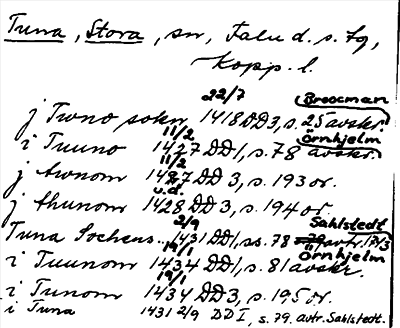 Tuna, Stora, sn, Falu d. s. fg,
Kopp. l.
22/7 Broocman
j Twno sokn 1418 DD3, s. 25 avskr.
11/2 Örnhjelm
i Tuuno 1427 DD1, s. 78 avskr.
11/2
j twnom 1427 DD 3, s. 193 or.
u.d.
j thunom 1428 DD 3, s. 194 or.
2/9 Sahlstedt
Tuna Sochens 1431 DD1, ss. 78 avtr.
19/1 Örnhjelm
i Tuunom 1434 DD1, s. 81 avskr.
19/1
i Tunom 1434 DD3, s. 195 or.
i Tuna 1431 2/9 DD I, s. 79. avtr. Sahlstedt.